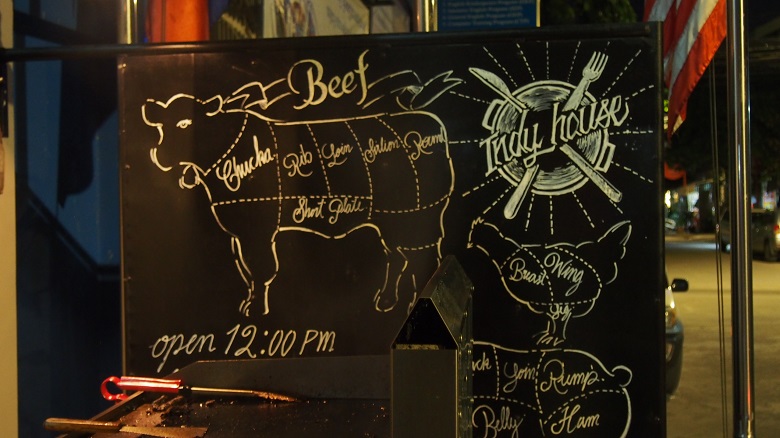 Beef
Indy house
Chucka
Rib
Loin
Salion
Round
Short Plate
open 12:00 PM
Breast
Wing
ck
Loin
Rump
Belly
Ham